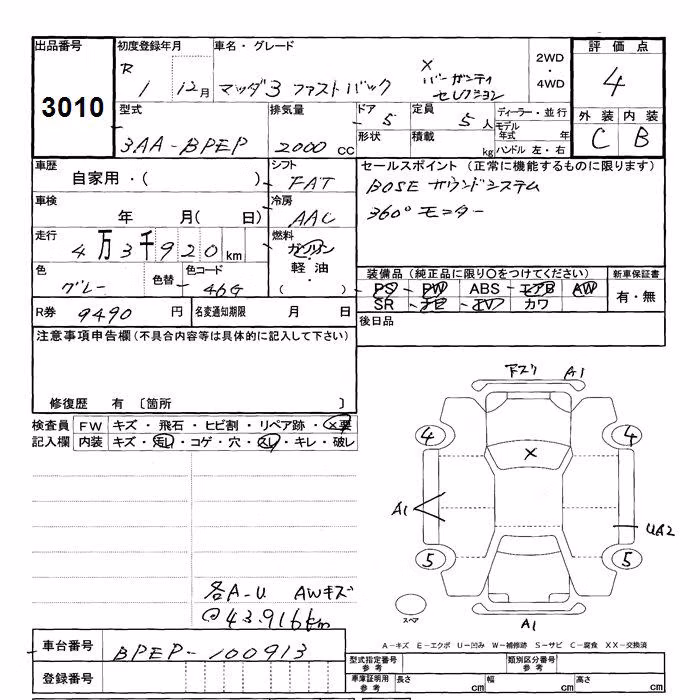 出品番号 初度登録年月 車名・グレード 評価点
3010 R1 12月 マツダ3 ファストバック X バーガンディ セレクション 2WD・4WD 4
型式 排気量 ドア 定員 ディーラー・並行 外装 内装
3AA-BPEP 2000cc 5 5人 モデル年式 年 C B
形状 積載 kg ハンドル 左・右
車歴 シフト セールスポイント (正常に機能するものに限ります)
自家用・( ) FAT BOSE サウンドシステム
車検 冷房 360°モニター
年 月( 日) AAC
走行 燃料
4万3千920km ガソリン
軽油
・
( )
色 色替 色コード 装備品(純正品に限り○をつけてください) 新車保証書
グレー 46G PS・PW ABS・エアB AW 有・無
SR・ナビ・TV カワ
R券 9490円 名変通知期限 月 日 後日品
注意事項申告欄(不具合内容等は具体的に記入して下さい)
修復歴 有 〔箇所 〕
検査員 FW キズ・飛石・ヒビ割・リペア跡・X要
記入欄 内装 キズ・汚れ・コゲ・穴・スレ・キレ・破レ
下スリ A1
4 4
X
A1
UA2
5 5
各A-U AWキズ
@43.916km
スペア
A1
A-キズ E-エクボ U-凹み W-補修跡 S-サビ C-腐食 XX-交換済
車台番号 BPEP-100913
型式指定番号 参考 類別区分番号 参考
登録番号
車庫証明用 参考 長さ cm 幅 cm 高さ cm